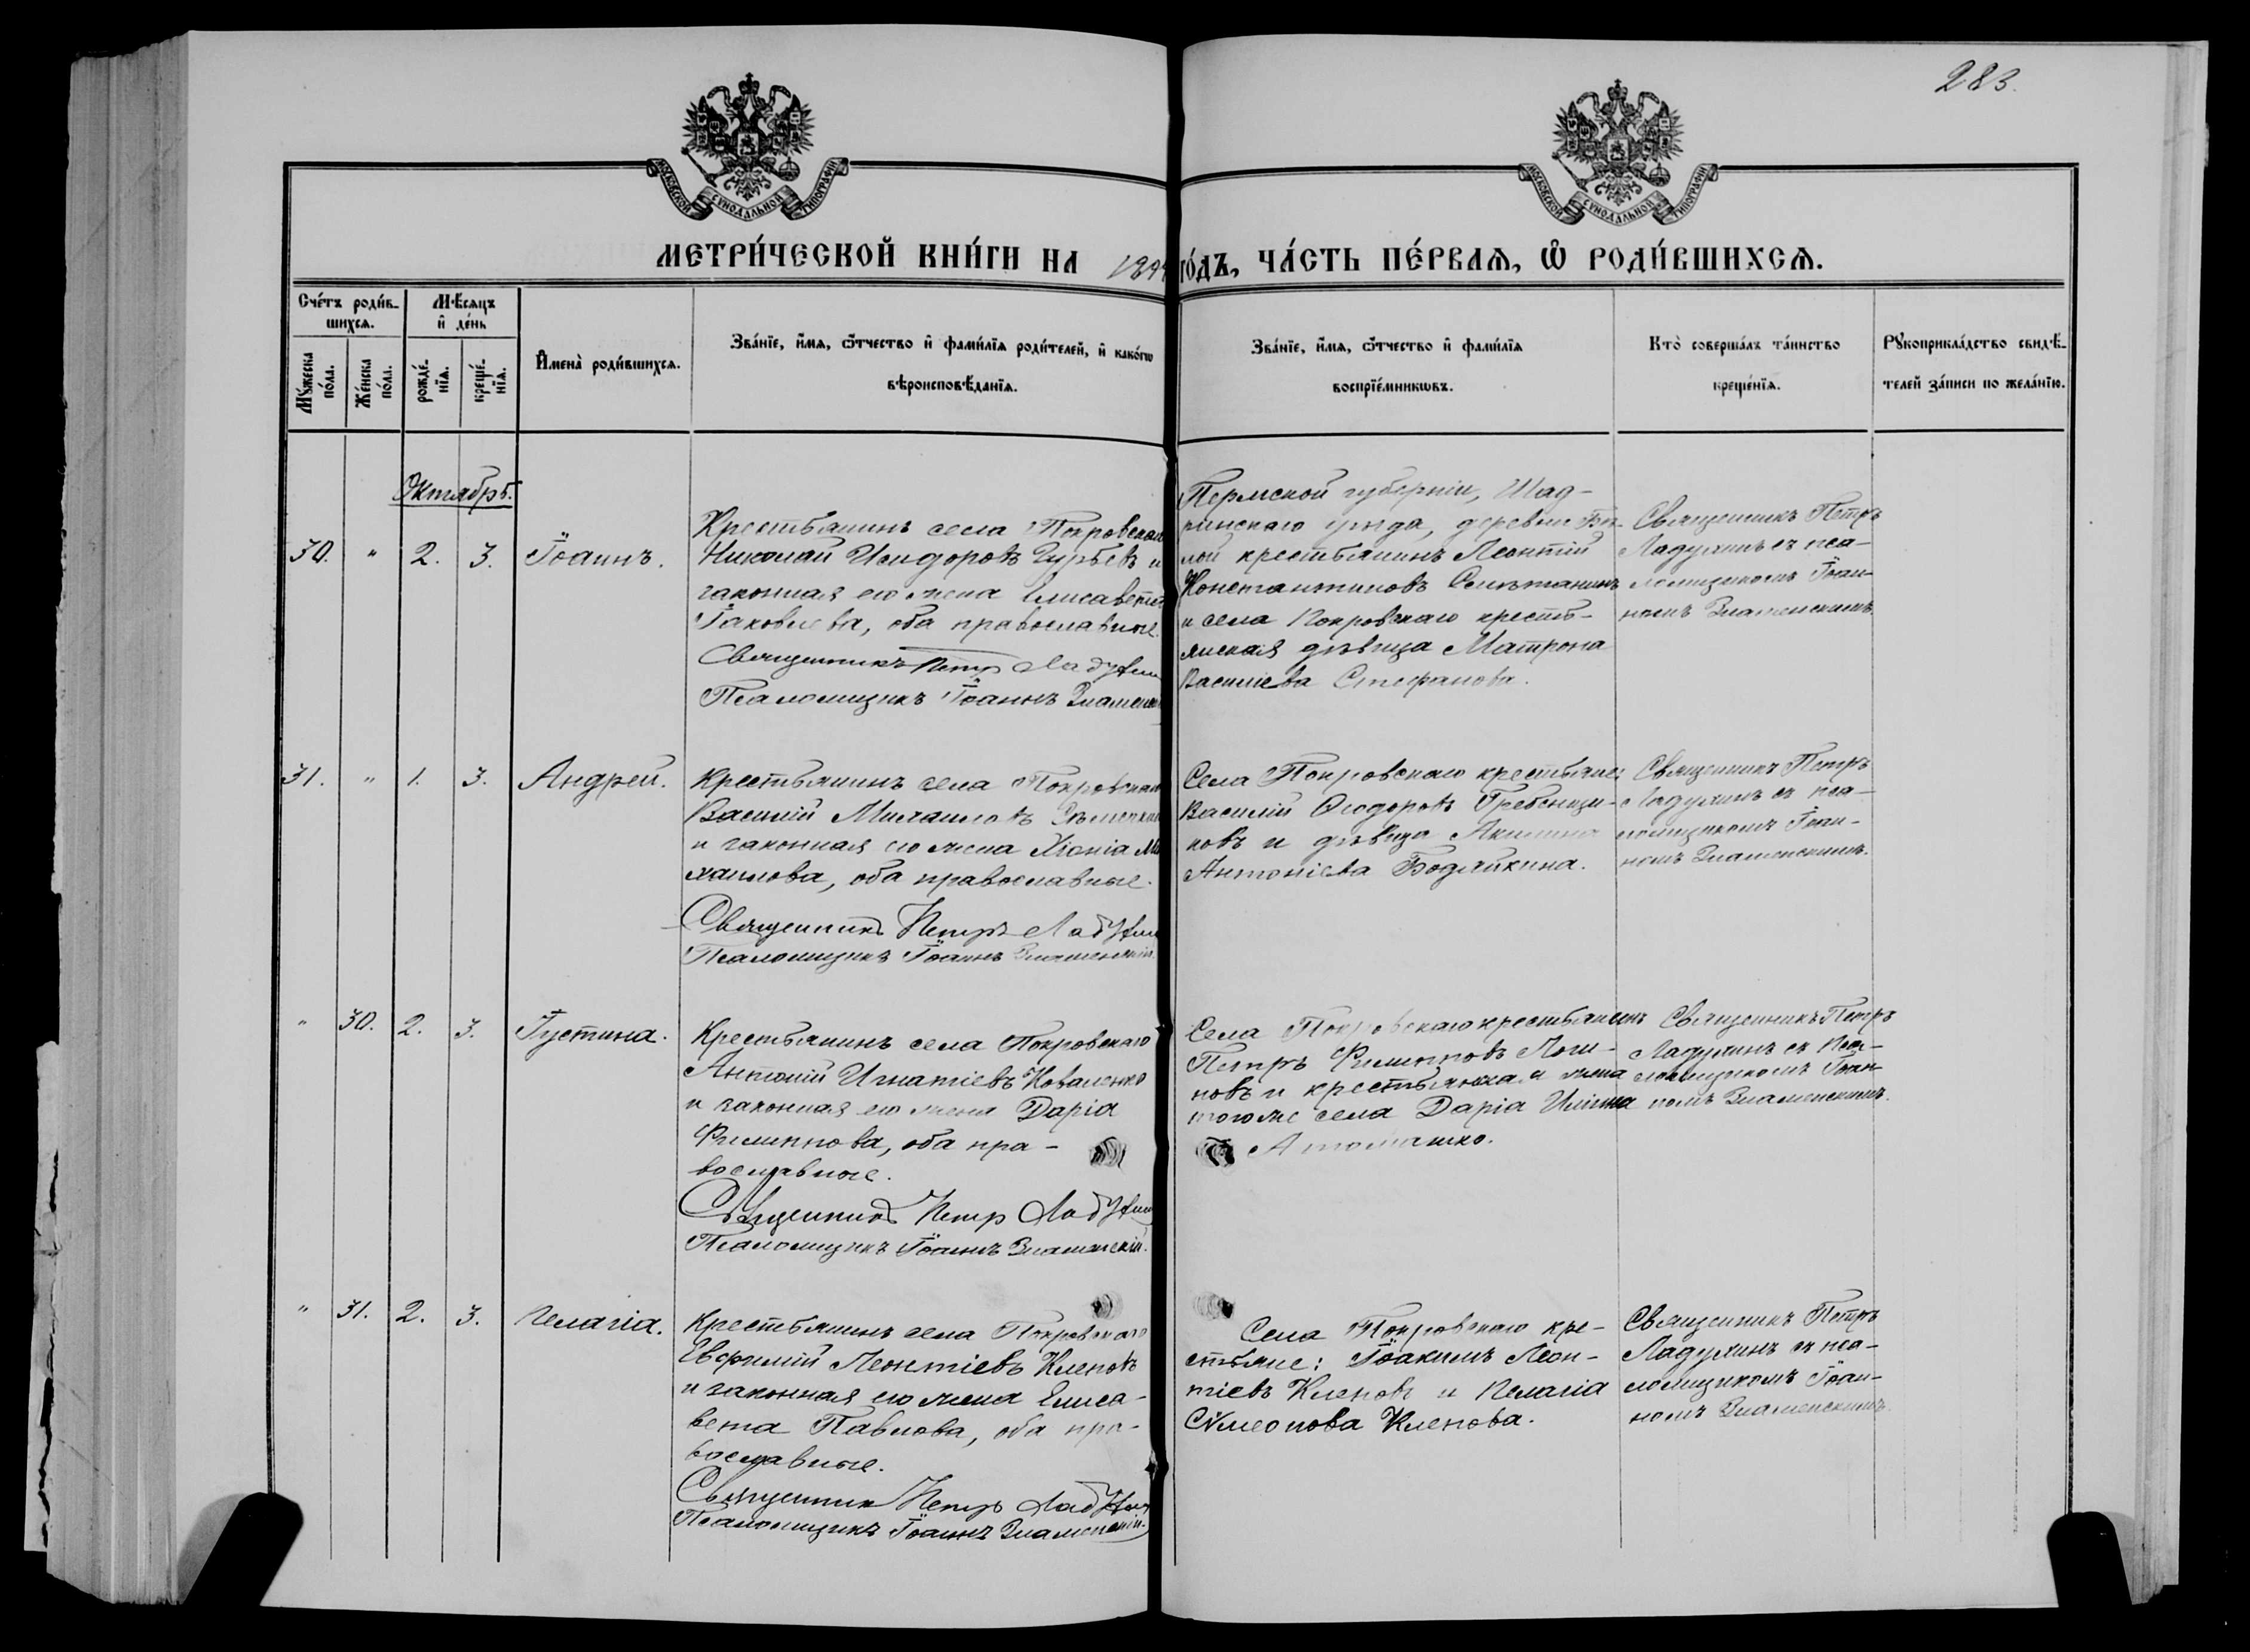 283.
МОСКОВСКОЙ СѴНОДАЛЬНОЙ ТИПОГРАФІИ
МОСКОВСКОЙ СѴНОДАЛЬНОЙ ТИПОГРАФІИ
МЕТРИ́ЧЕСКОЙ КНИ́ГИ НА 189 го́дъ, ЧА́СТЬ ПЕ́РВАѦ, Ѽ РОДИ́ВШИХСѦ.
Сче́тъ роди́в-
шихсѧ.
Мꙋ́жеска
по́ла.
Же́нска
по́ла.
Мѣ́сѧцъ
и҆ де́нь
рожде́-
нїѧ.
креще́-
нїѧ.
И҆мена̀ роди́вшихсѧ.
Зва́нїе, и҆́мѧ, ѻ҆́тчество и҆ фами́лїѧ роди́телей, и҆ како́гѡ
вѣроисповѣ́данїѧ.
Зва́нїе, и҆́мѧ, ѻ҆́тчество и҆ фами́лїѧ
воспрїе́мникѡвъ.
Кто̀ соверша́лъ та́инство
креще́нїѧ.
Рꙋкоприкла́дство свидѣ́-
телей за́писи по жела́нїю.
Октябрь.
30. " 2. 3. Іоаннъ.
Крестьянинъ села Покровскаго
Николай Исидоровъ Гурьевъ и
законная его жена Елисавета
Іаковлева, оба православные.
Священникъ Петр Ладухин
Псаломщикъ Іоаннъ Знаменск
Пермской губерніи, Шад-
ринскаго уѣзда, деревни
лой крестьянинъ Леонтій
Константиновъ
и села Покровскаго кресть-
янская дѣвица Матрона
Василіева Стефанова.
Священникъ Петръ
Ладухинъ съ пса-
ломщикомъ Іоан-
номъ Знаменскимъ
31. " 1. 3. Андрей.
Крестьянинъ села Покровскаго
Василій Михаиловъ
и законная его жена Хіонія Ми
хаилова, оба православные.
Священникъ Петръ Ладухин
Псаломщикъ Іоаннъ Знаменскій.
Села Покровскаго крестьяне:
Василій Ѳеодоровъ Гребенщи-
ковъ и дѣвица
Антоніева Бодяйкина.
Священникъ Петръ
Ладухинъ съ пса-
ломщикомъ Іоан-
номъ Знаменскимъ.
" 30. 2. 3. Іустина.
Крестьянинъ села Покровскаго
Антоній Игнатіевъ Коваленко
и законная его жена Дарія
Филиппова, оба пра-
вославные.
Священникъ Петр Ладухин
Псаломщикъ Іоаннъ Знаменскій.
Села Покровскаго крестьянинъ
Петръ Филипповъ Логи-
новъ и крестьянка и жена
тогоже села Дарія Иліина
Священникъ Петръ
Ладухинъ съ Пса-
ломщикомъ Іоан-
номъ Знаменскимъ.
" 31. 2. 3. Пелагія.
Крестьянинъ села Покровскаго
Евфимій Леонтіевъ Кленовъ
и законная его жена Елиса-
вета Павлова, оба пра-
вославные.
Священник Петръ Ладухин
Псаломщикъ Іоаннъ Знаменскій.
Села Покровскаго кре-
стьяне: Іоакимъ Леон-
тіевъ Кленовъ и Пелагія
Сѵмеонова Кленова.
Священникъ Петръ
Ладухинъ съ пса-
ломщикомъ Іоан-
номъ Знаменскимъ.